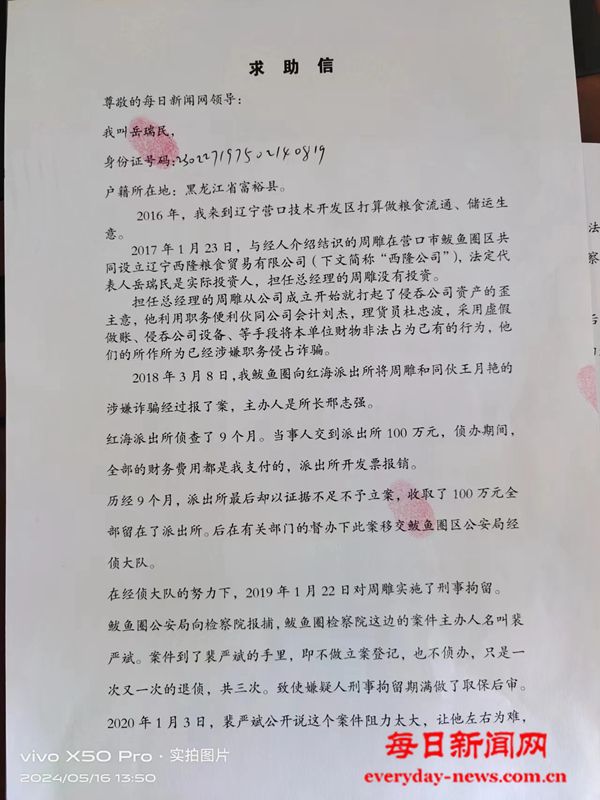 求 助 信
尊敬的每日新闻网领导：
我叫岳瑞民，
身份证号码：230227197502140819
户籍所在地：黑龙江省富裕县。
2016 年，我来到辽宁营口技术开发区打算做粮食流通、储运生
意。
2017 年 1 月 23 日，与经人介绍结识的周雕在营口市鲅鱼圈区共
同设立辽宁西隆粮食贸易有限公司（下文简称“西隆公司”），法定代
表人岳瑞民是实际投资人，担任总经理的周雕没有投资。
担任总经理的周雕从公司成立开始就打起了侵吞公司资产的歪
主意，他利用职务便利伙同公司会计刘杰，理货员杜忠波，采用虚假
做账、侵吞公司设备、等手段将本单位财物非法占为己有的行为，他
们的所作所为已经涉嫌职务侵占诈骗。
2018 年 3 月 8 日，我鲅鱼圈向红海派出所将周雕和同伙王月艳的
涉嫌诈骗经过报了案，主办人是所长邢志强。
红海派出所侦查了 9 个月。当事人交到派出所 100 万元，侦办期间，
全部的财务费用都是我支付的，派出所开发票报销。
历经 9 个月，派出所最后却以证据不足不予立案，收取了 100 万元全
部留在了派出所。后在有关部门的督办下此案移交鲅鱼圈区公安局经
侦大队。
在经侦大队的努力下，2019 年 1 月 22 日对周雕实施了刑事拘留。
鲅鱼圈公安局向检察院报捕，鲅鱼圈检察院这边的案件主办人名叫裴
严斌。案件到了裴严斌的手里，即不做立案登记，也不侦办，只是一
次又一次的退侦，共三次。致使嫌疑人刑事拘留期满做了取保后审。
2020 年 1 月 3 日，裴严斌公开说这个案件阻力太大，让他左右为难，
法
察
后
vivo X50 Pro · 实拍图片
2024/05/16 13:50
每日新闻网
everyday-news.com.cn